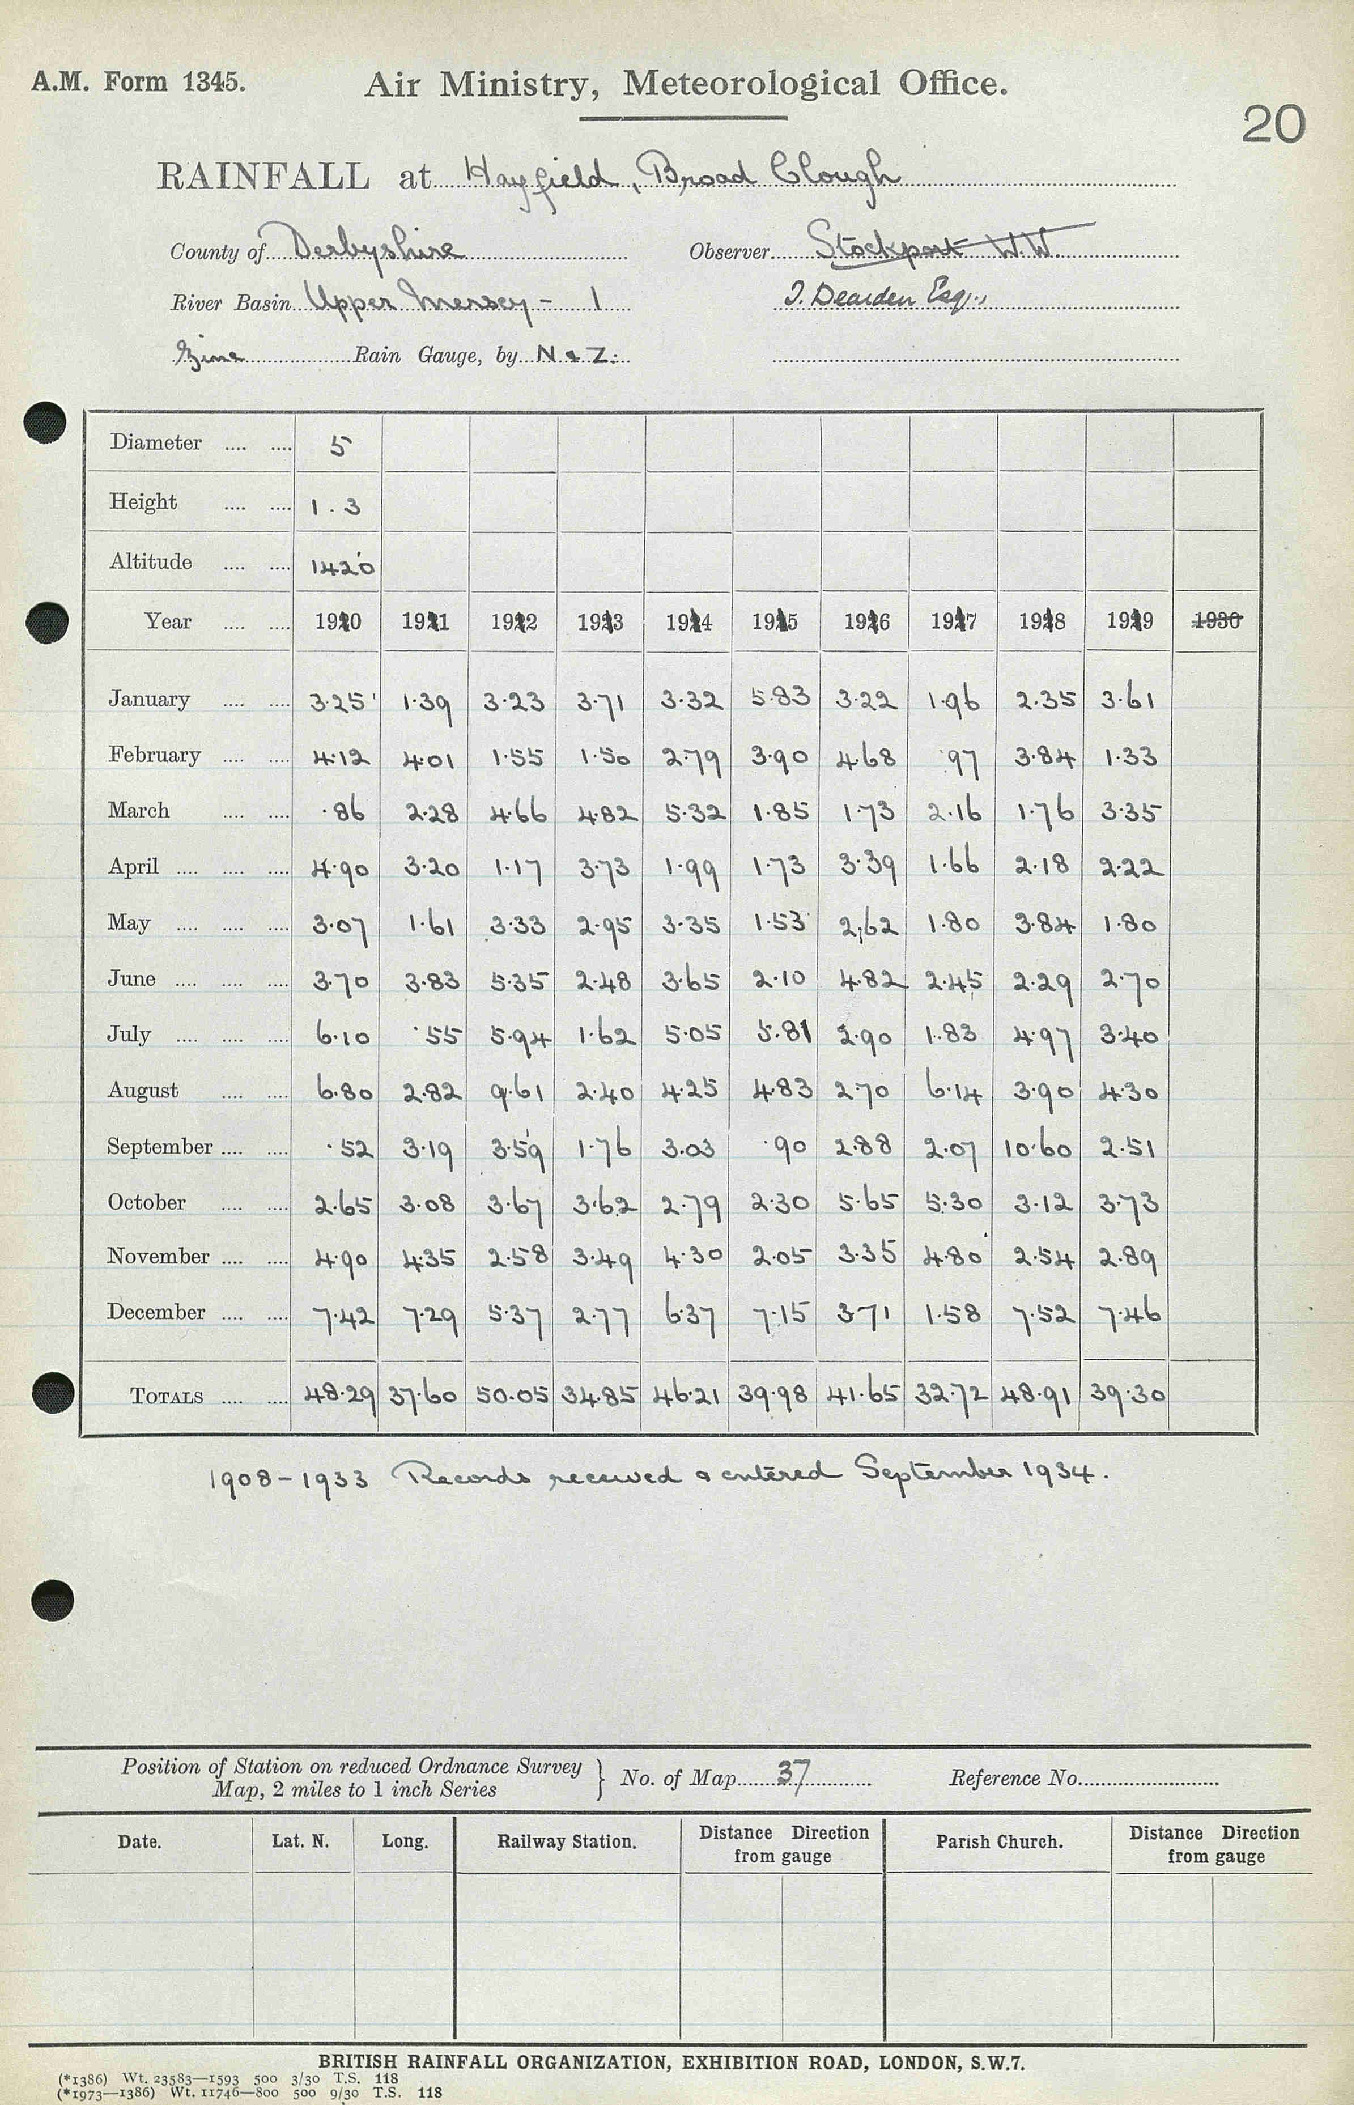 A.M. Form 1345.
Air Ministry, Meteorological Office.
20
RAINFALL at Hayfield, Broad Clough
County of Derbyshire Observer Stockport W.W.
River Basin Upper Mersey - 1 J. Dearden Esq.,
Zinc Rain Gauge, by N & Z.
Diameter 5
Height 1.3
Altitude 1420
Year 1910 1911 1912 1913 1914 1915 1916 1917 1918 1919 1930
January 3.25 1.39 3.23 3.71 3.32 5.83 3.22 1.96 2.35 3.61
February 4.12 4.01 1.55 1.50 2.79 3.90 4.68 .97 3.84 1.33
March .86 2.28 4.66 4.82 5.32 1.85 1.73 2.16 1.76 3.35
April 4.90 3.20 1.17 3.73 1.99 1.73 3.39 1.66 2.18 2.22
May 3.07 1.61 3.33 2.95 3.35 1.53 2.62 1.80 3.84 1.80
June 3.70 3.83 5.35 2.48 3.65 2.10 4.82 2.45 2.29 2.70
July 6.10 .55 5.94 1.62 5.05 5.81 2.90 1.83 4.97 3.40
August 6.80 2.82 9.61 2.40 4.25 4.83 2.70 6.14 3.90 4.30
September .52 3.19 3.59 1.76 3.03 .90 2.88 2.07 10.60 2.51
October 2.65 3.08 3.67 3.62 2.79 2.30 5.65 5.30 3.12 3.73
November 4.90 4.35 2.58 3.49 4.30 2.05 3.35 4.80 2.54 2.89
December 7.42 7.29 5.37 2.77 6.37 7.15 3.71 1.58 7.52 7.46
TOTALS 48.29 37.60 50.05 34.85 46.21 39.98 41.65 32.72 48.91 39.30
1908-1933 Records received & entered September 1934.
Position of Station on reduced Ordnance Survey
Map, 2 miles to 1 inch Series } No. of Map 37 Reference No.
Date. Lat. N. Long. Railway Station. Distance Direction from gauge Parish Church. Distance Direction from gauge
BRITISH RAINFALL ORGANIZATION, EXHIBITION ROAD, LONDON, S.W.7.
(*1386) Wt. 23583—1593 500 3/30 T.S. 118
(*1973—1386) Wt. 11746—800 500 9/30 T.S. 118